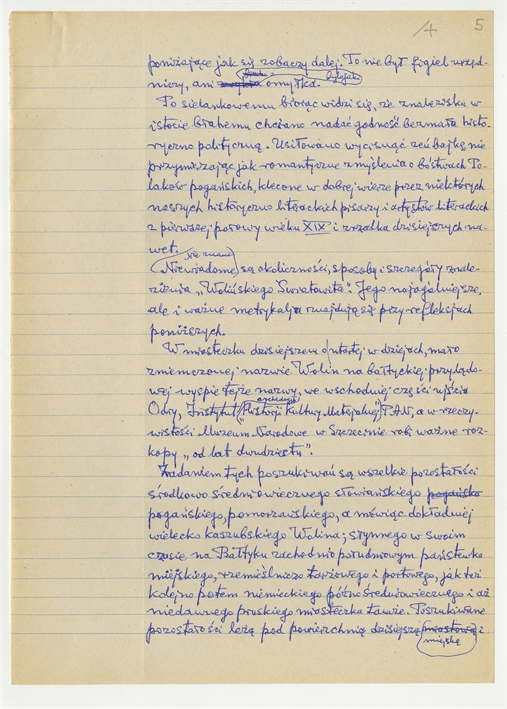 14 5
poniżające jak się zobaczy dalej. To nie był figiel urzęd-
niczy, ani omyłka.
Po sielankowemu biorąc widzi się, że znalezisku w
istocie błahemu chciano nadać godność bezmała histo-
ryczno polityczną. Usiłowano wycisnąć zeń bajkę, nie
przymierzając jak romantyczne zmyślenia o bóstwach Po-
laków pogańskich, klecone w dobrej wierze przez niektórych
naszych historyczno literackich pisarzy i artystów literackich
z pierwszej połowy wieku XIX i zrzadka dzisiejszych na-
wet.
Nie znane
Niewiadome są okoliczności, sposoby i szczegóły znale-
zienia „Wolińskiego Światowita". Jego najogólniejsze,
ale i ważne metrykalja znajdują się przy refleksjach
poniższych.
W miasteczku dzisiejszem o utartej w dziejach, mało
zmienionej nazwie Wolin na bałtyckiej przylądo-
wej wyspie tejże nazwy, we wschodniej części ujścia
Odry, Instytut Historji Kultury Materjalnej PAN, a w rzeczy-
wistości Muzeum Narodowe w Szczecinie robi ważne roz-
kopy „od lat dwudziestu".
Zadaniem tych poszukiwań są wszelkie pozostałości
środkowo średniowiecznego słowiańskiego pogańsko
pogańskiego, pomorzawskiego, a mówiąc dokładniej
wielecko kaszubskiego Wolina; słynnego w swoim
czasie na Bałtyku zachodnio południowym państewka
miejskiego, rzemieślniczo targowego i portowego, jak też
kolejno potem niemieckiego późnośredniowiecznego i aż
niedawnego pruskiego miasteczka tamże. Poszukiwane
pozostałości leżą pod powierzchnią dzisiejszą miastową i
miejską